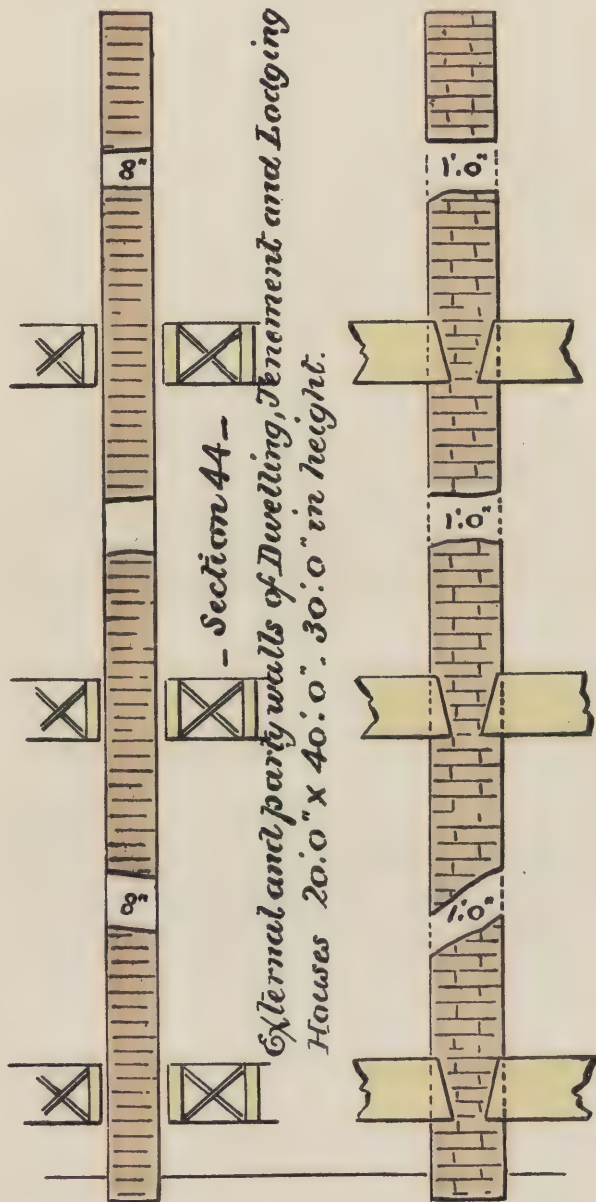 8"
8"
– Section 44 –
External and party walls of Dwelling, Tenement and Lodging
Houses 20'.0" x 40'.0". 30'.0" in height.
1'.0"
1'.0"
1'.0"